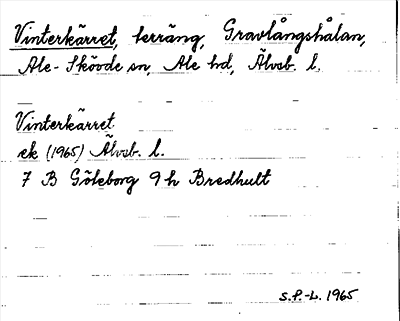 Vinterkärret, terräng, Gravlångshålan,
Ale-Skövde sn, Ale hd, Älvsb. l.
Vinterkärret
ek (1965) Älvsb. l.
7 B Göteborg 9 h Bredhult
S.P.-L. 1965